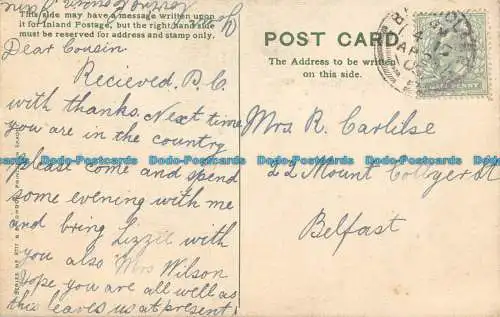 This side may have a message written upon
it for Inland Postage, but the right-hand side
must be reserved for address and stamp only.
POST CARD
The Address to be written
on this side.
Dear Cousin
Recieved P. C
with thanks. Next time
you are in the country
please come and spend
some evening with me
and bring Lizzie with
you also Mrs Wilson
hope you are all well as
this leaves us at present
Mrs R. Carlilse
22 Mount Collyer St
Belfast
Dodo-Postcards Dodo-Postcards Dodo-Postcards Dodo-Postcards
Dodo-Postcards Dodo-Postcards Dodo-Postcards Dodo-Postcards